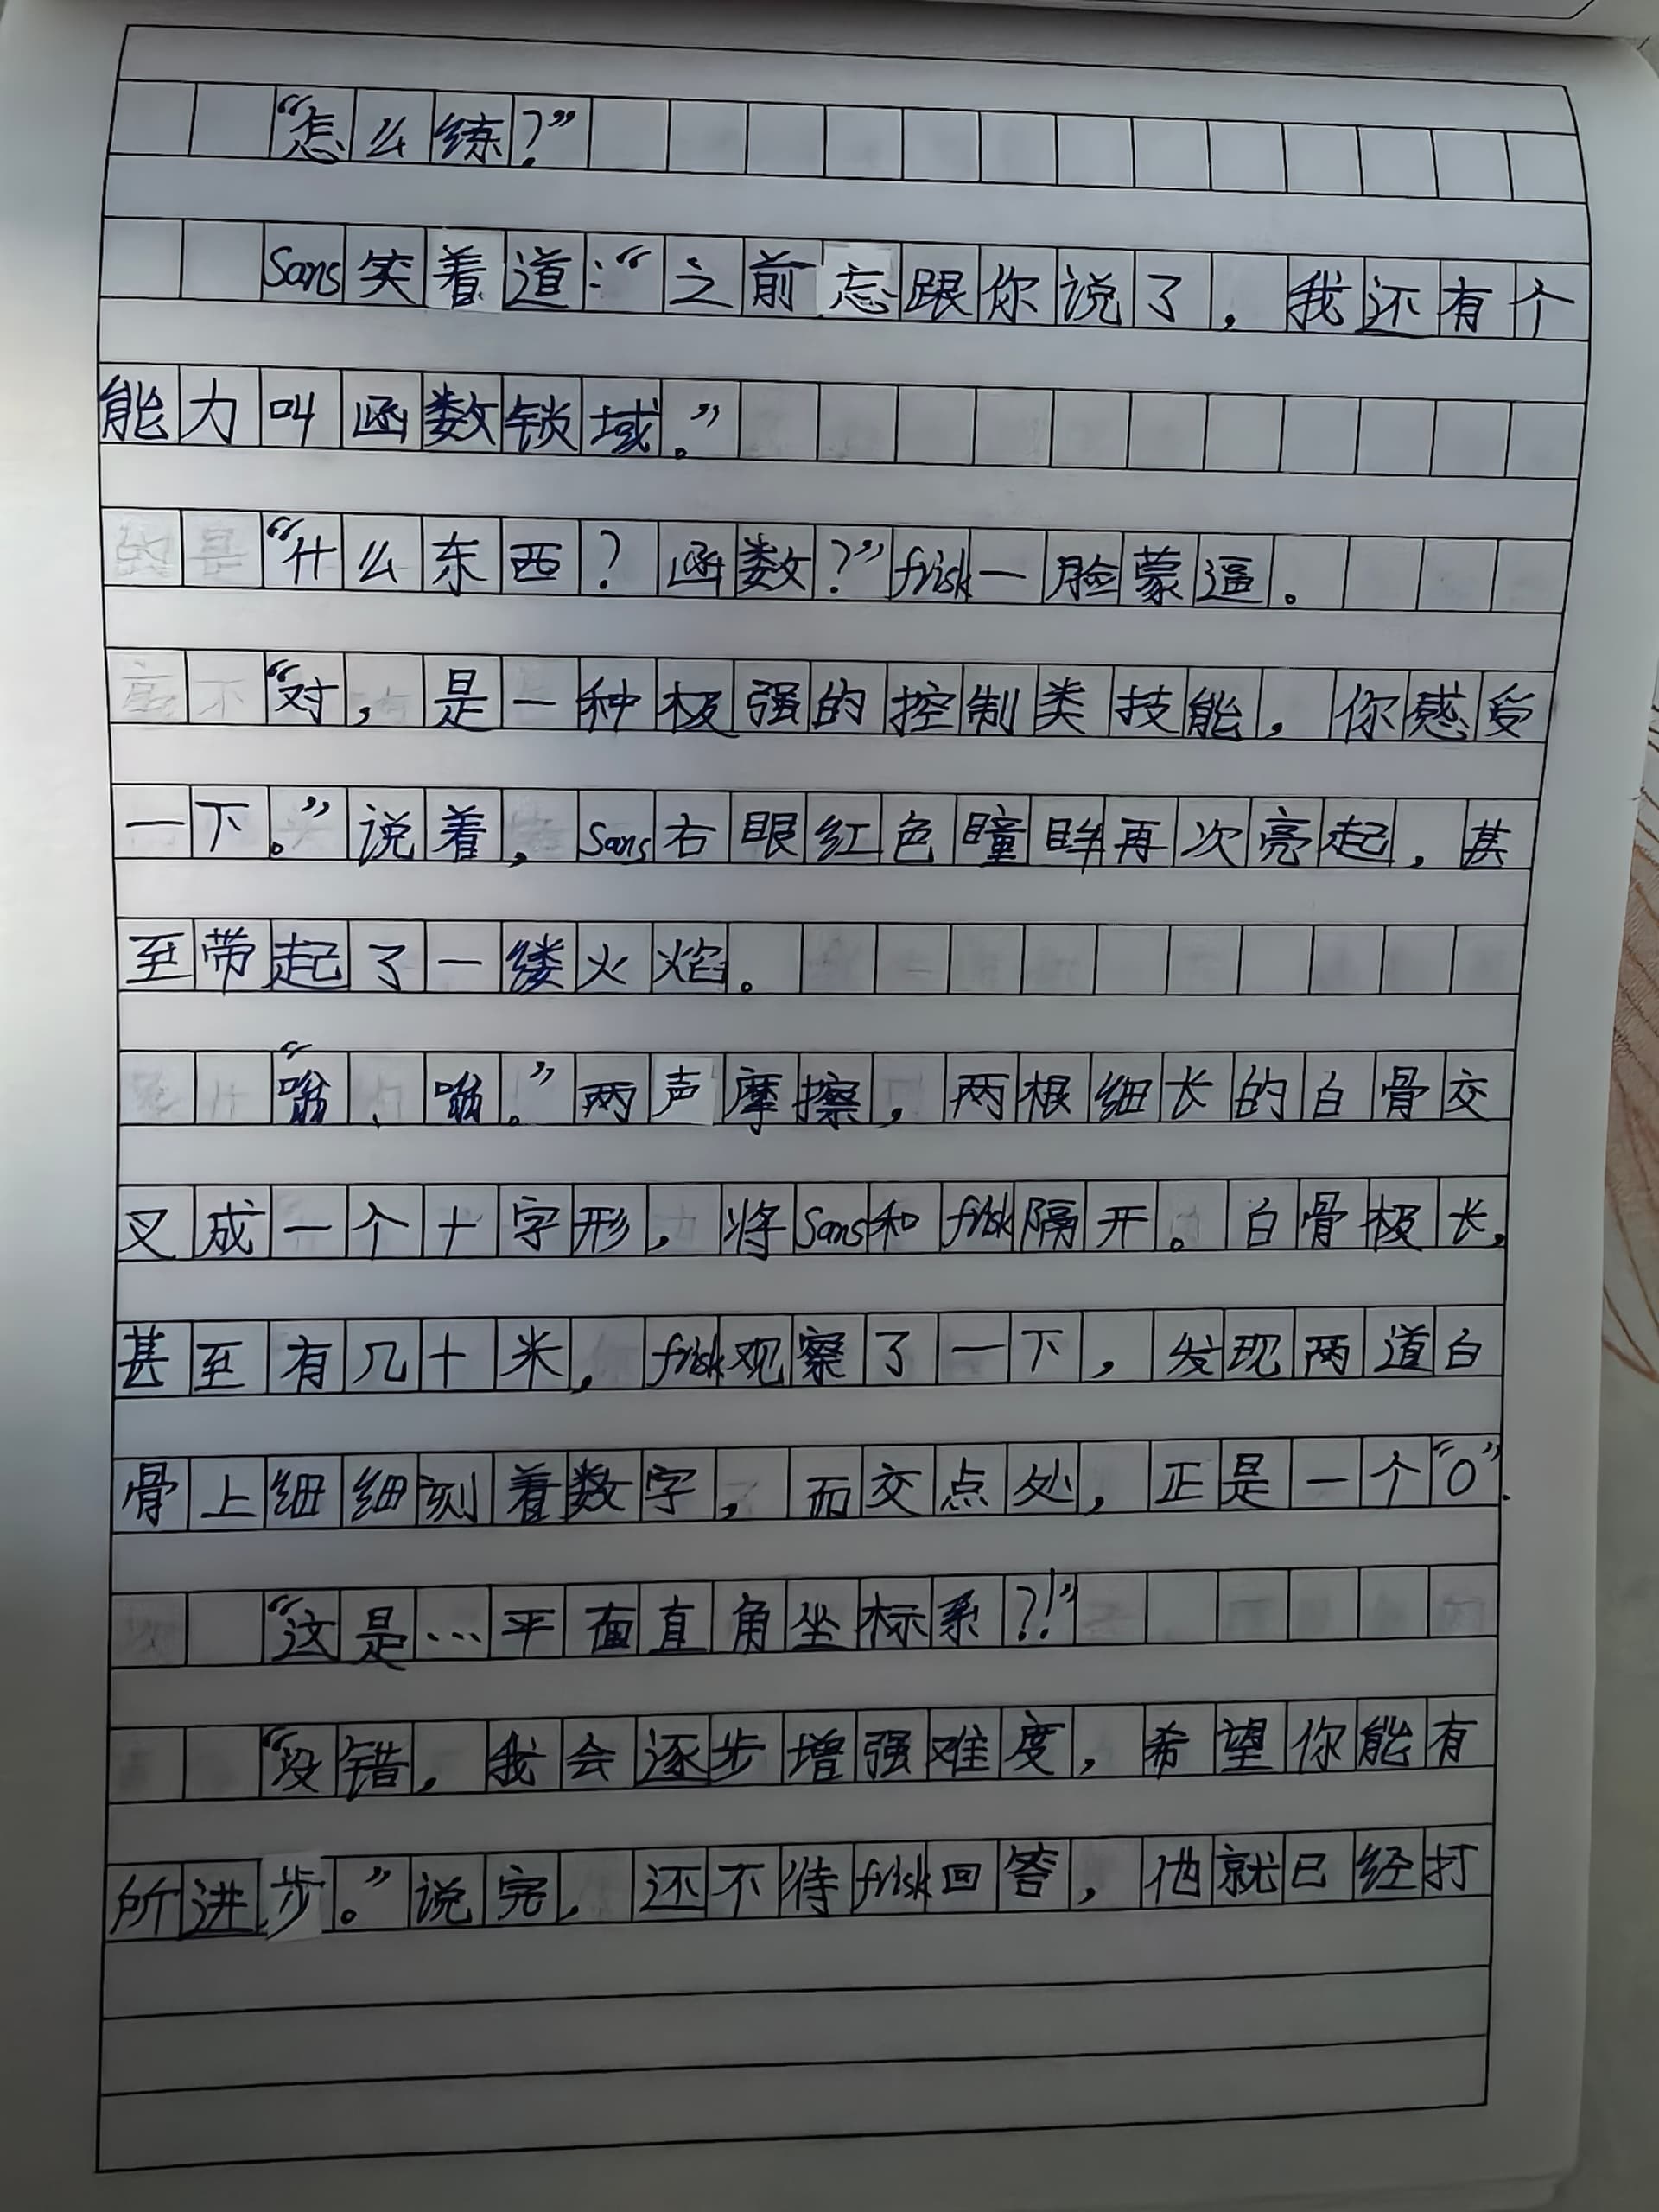 “怎么练?”
Sans笑着道:“之前忘跟你说了,我还有个
能力叫函数锁域。”
“什么东西?函数?”frisk一脸蒙逼。
“对,是一种极强的控制类技能,你感受
一下。”说着,Sans右眼红色瞳眸再次亮起,甚
至带起了一缕火焰。
“嗡、嗡。”两声摩擦,两根细长的白骨交
叉成一个十字形,将Sans和frisk隔开。白骨极长,
甚至有几十米,frisk观察了一下,发现两道白
骨上细细刻着数字,而交点处,正是一个“0”.
“这是…平面直角坐标系?!”
“没错,我会逐步增强难度,希望你能有
所进步。”说完,还不待frisk回答,他就已经打